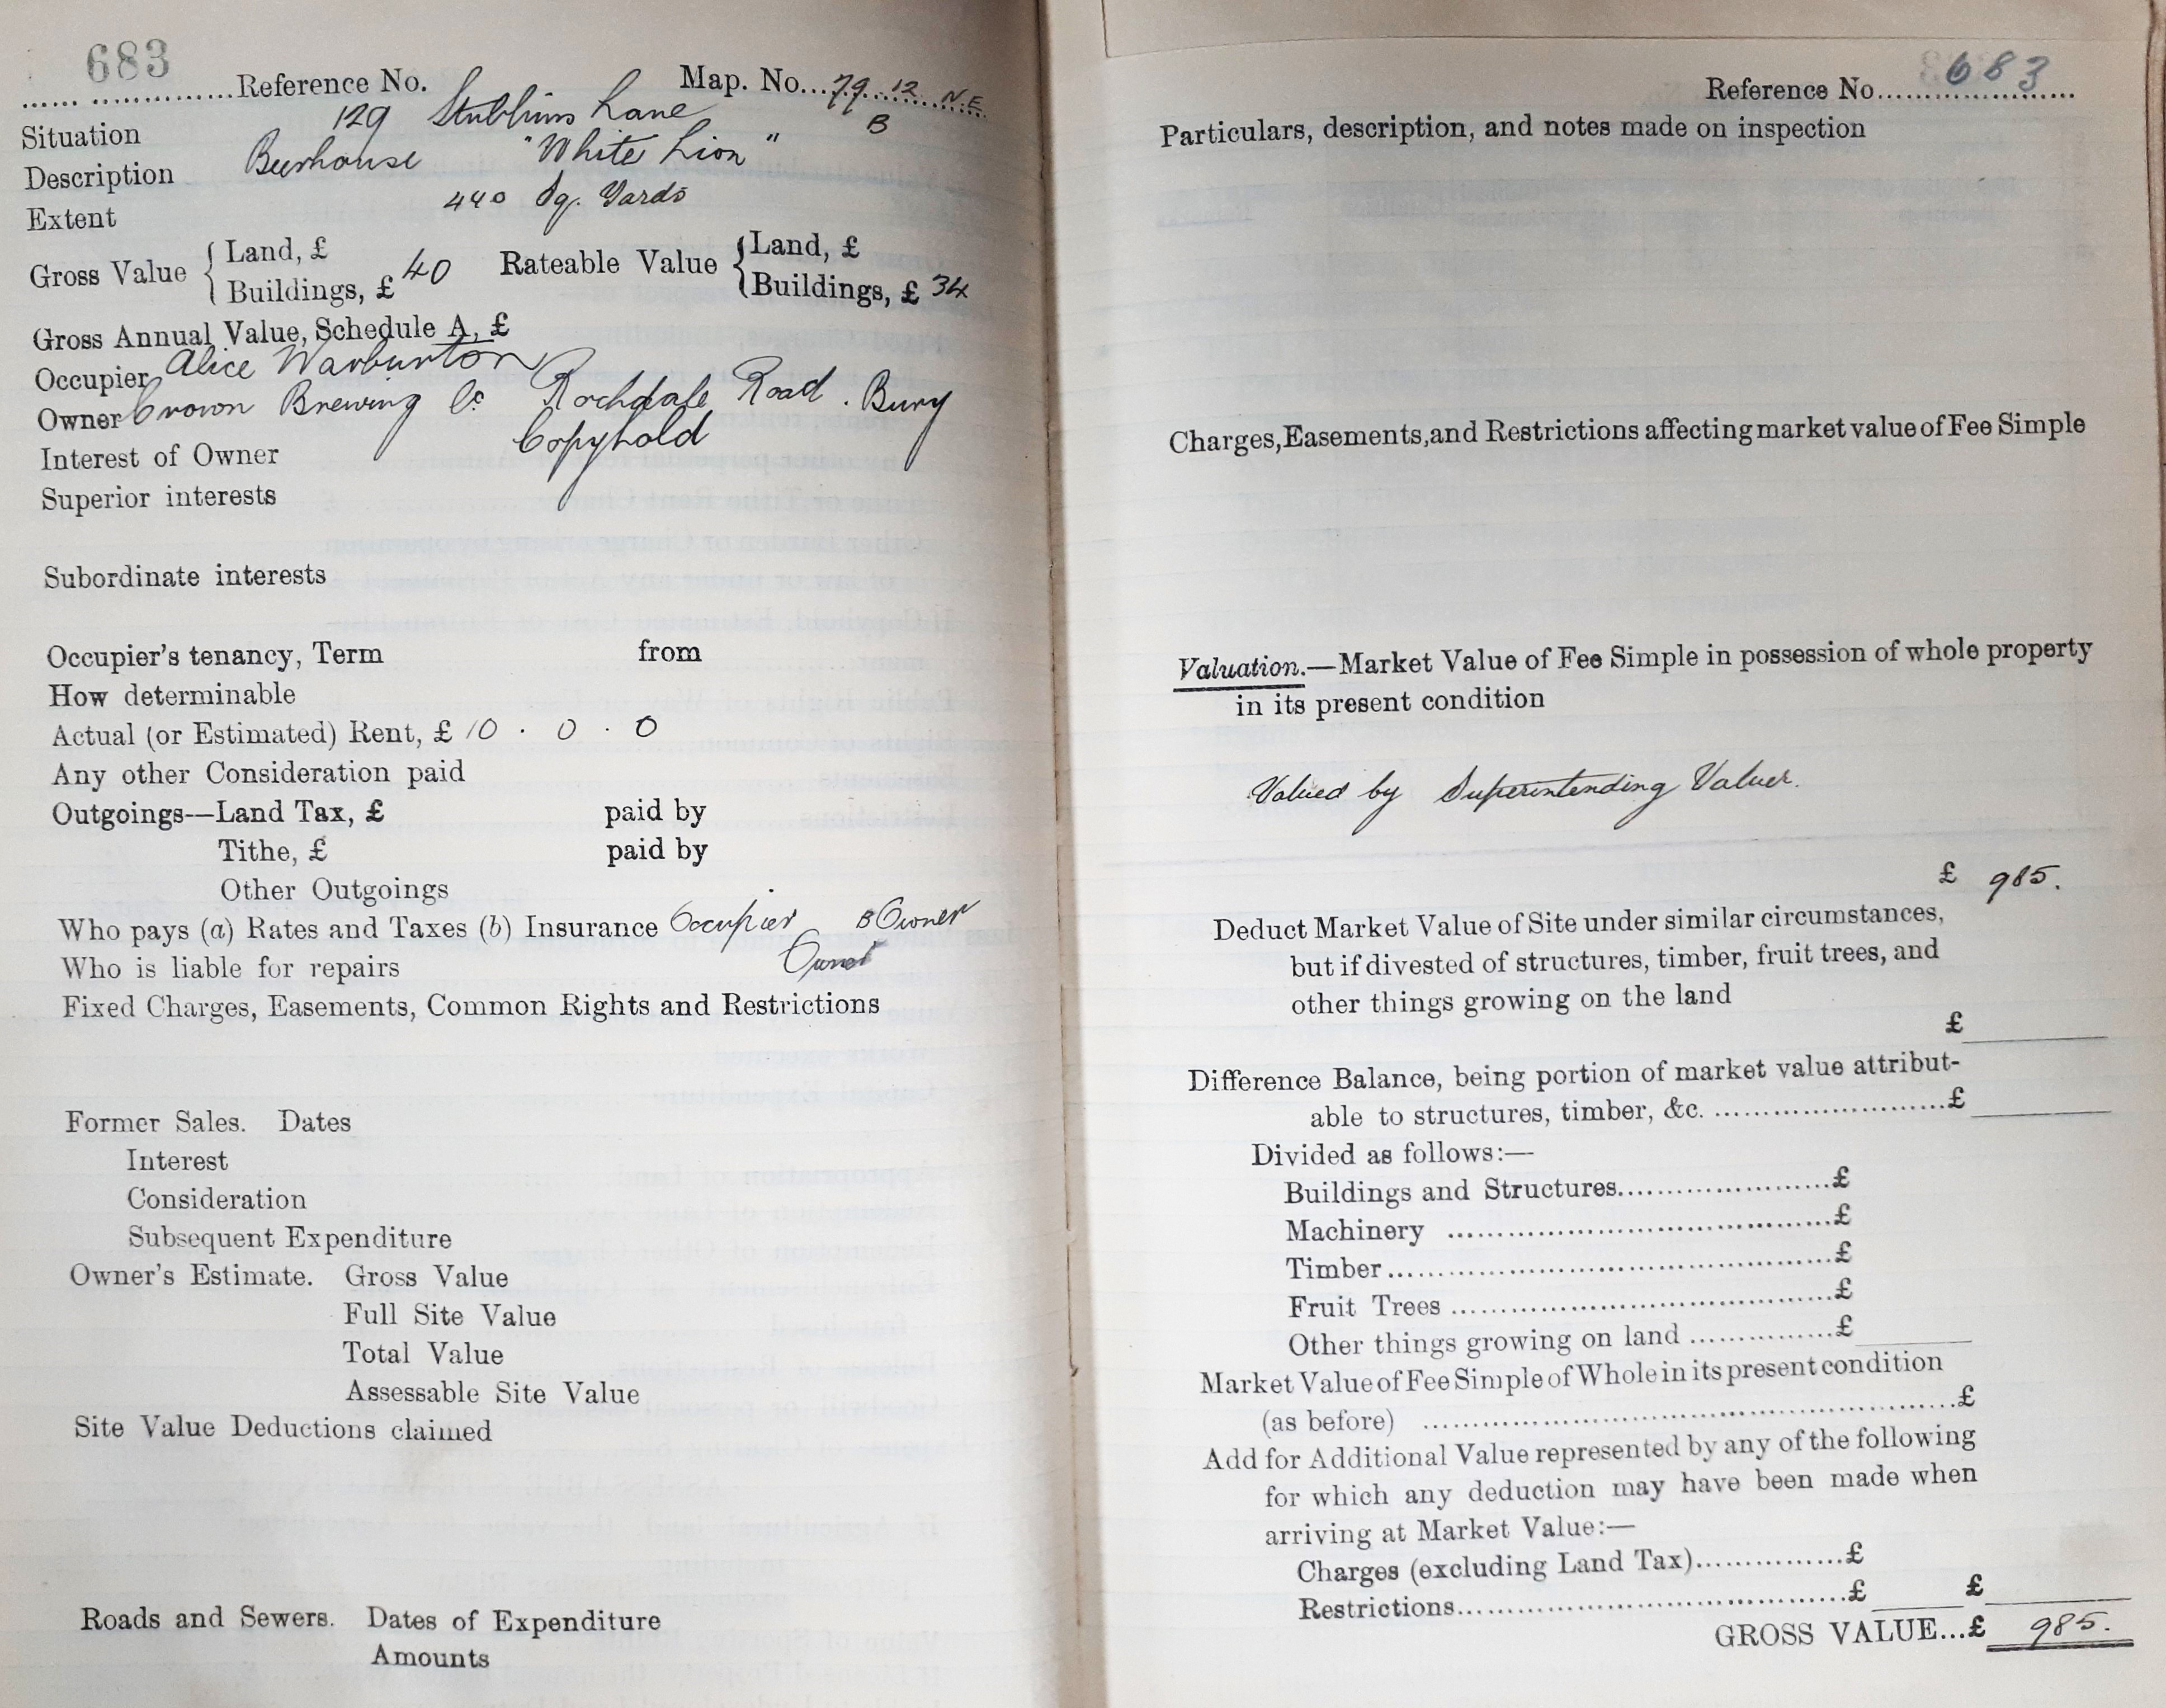 683
Reference No. Map. No. 79. 12 N.E.
B
Situation 129 Stubbins Lane
Description Beerhouse "White Lion"
Extent 440 Sq. Yards
Gross Value { Land, £ Rateable Value { Land, £
Buildings, £ 40 Buildings, £ 34
Gross Annual Value, Schedule A, £
Occupier Alice Warburton
Owner Crown Brewing Co Rochdale Road. Bury
Interest of Owner Copyhold
Superior interests
Subordinate interests
Occupier's tenancy, Term from
How determinable
Actual (or Estimated) Rent, £ 10 . 0 . 0
Any other Consideration paid
Outgoings—Land Tax, £ paid by
Tithe, £ paid by
Other Outgoings
Who pays (a) Rates and Taxes (b) Insurance Occupier B Owner
Who is liable for repairs Owner
Fixed Charges, Easements, Common Rights and Restrictions
Former Sales. Dates
Interest
Consideration
Subsequent Expenditure
Owner's Estimate. Gross Value
Full Site Value
Total Value
Assessable Site Value
Site Value Deductions claimed
Roads and Sewers. Dates of Expenditure
Amounts
Reference No. 683
Particulars, description, and notes made on inspection
Charges, Easements, and Restrictions affecting market value of Fee Simple
Valuation.—Market Value of Fee Simple in possession of whole property
in its present condition
Valued by Superintending Valuer.
£ 985.
Deduct Market Value of Site under similar circumstances,
but if divested of structures, timber, fruit trees, and
other things growing on the land
£
Difference Balance, being portion of market value attribut-
able to structures, timber, &c. £
Divided as follows:—
Buildings and Structures £
Machinery £
Timber £
Fruit Trees £
Other things growing on land £
Market Value of Fee Simple of Whole in its present condition
(as before) £
Add for Additional Value represented by any of the following
for which any deduction may have been made when
arriving at Market Value:—
Charges (excluding Land Tax) £
Restrictions £ £
GROSS VALUE...£ 985.